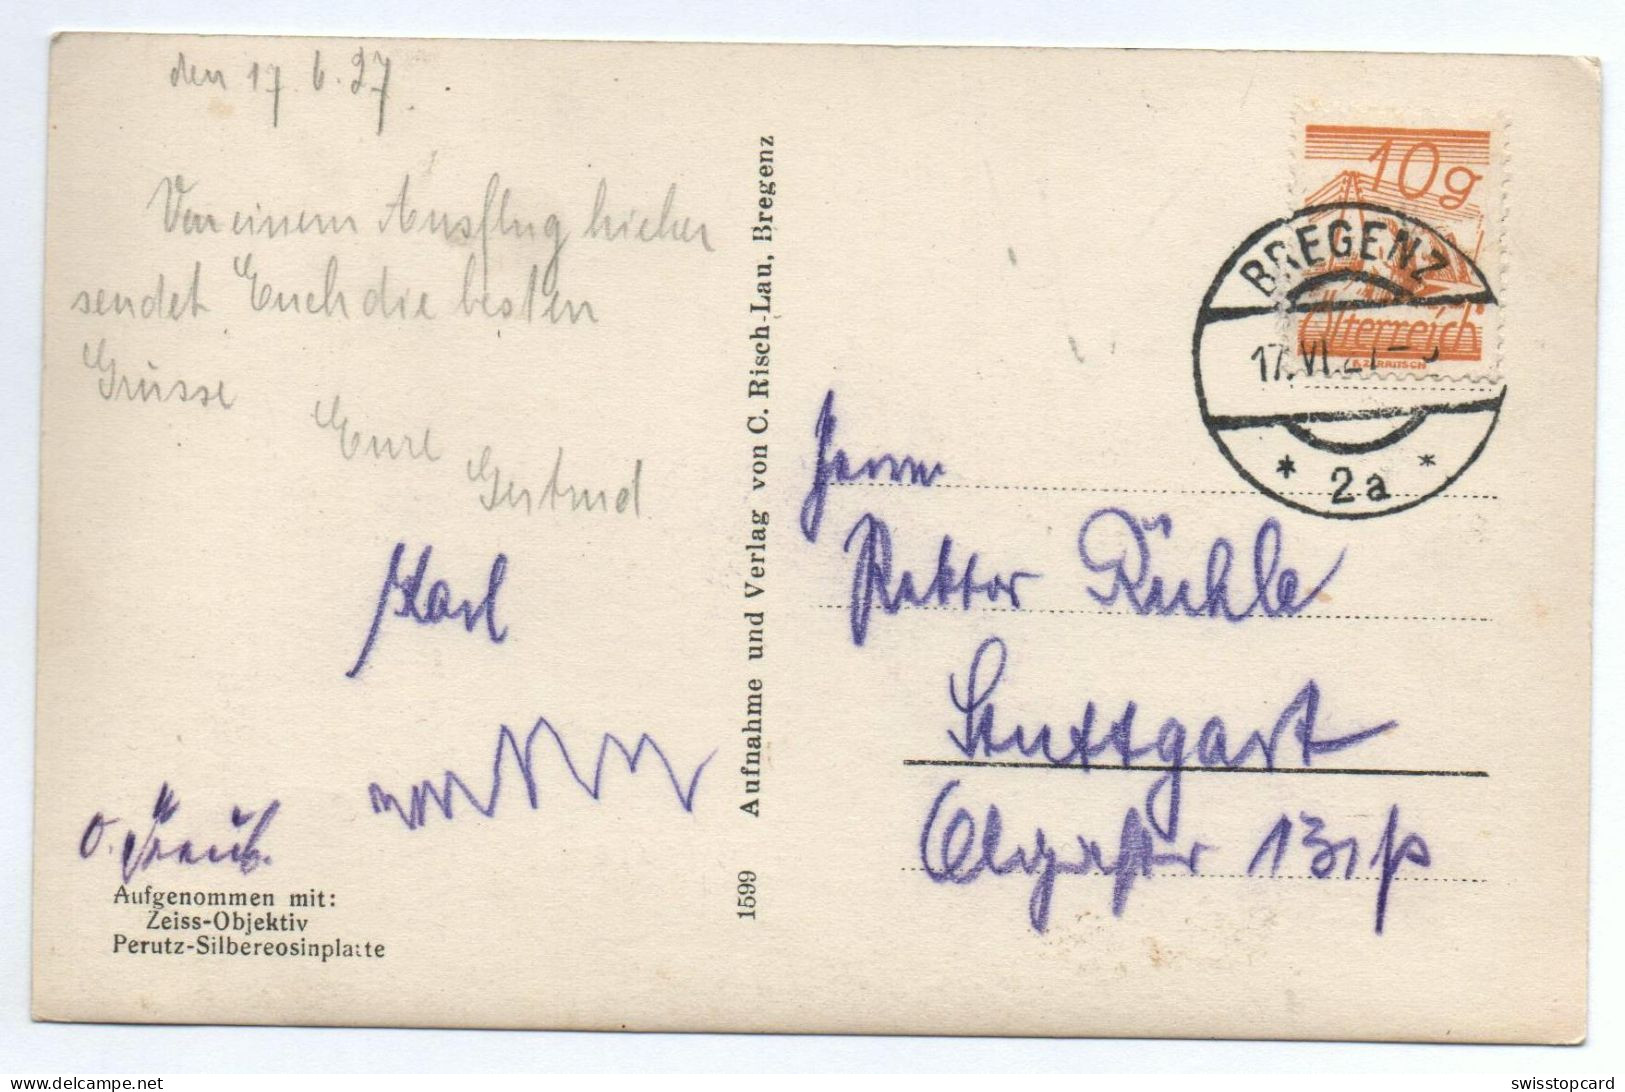 den 17. 6. 27.
Von einem Ausflug hieher
sendet Euch die besten
Grüsse
Eure
Gertrud
Karl
Aufgenommen mit:
Zeiss-Objektiv
Perutz-Silbereosinplatte
1599 Aufnahme und Verlag von C. Risch-Lau, Bregenz
10g
Österreich
BREGENZ
17. VI. 27
* 2a *
Herrn
Rektor Rühle
Stuttgart
swisstopcard